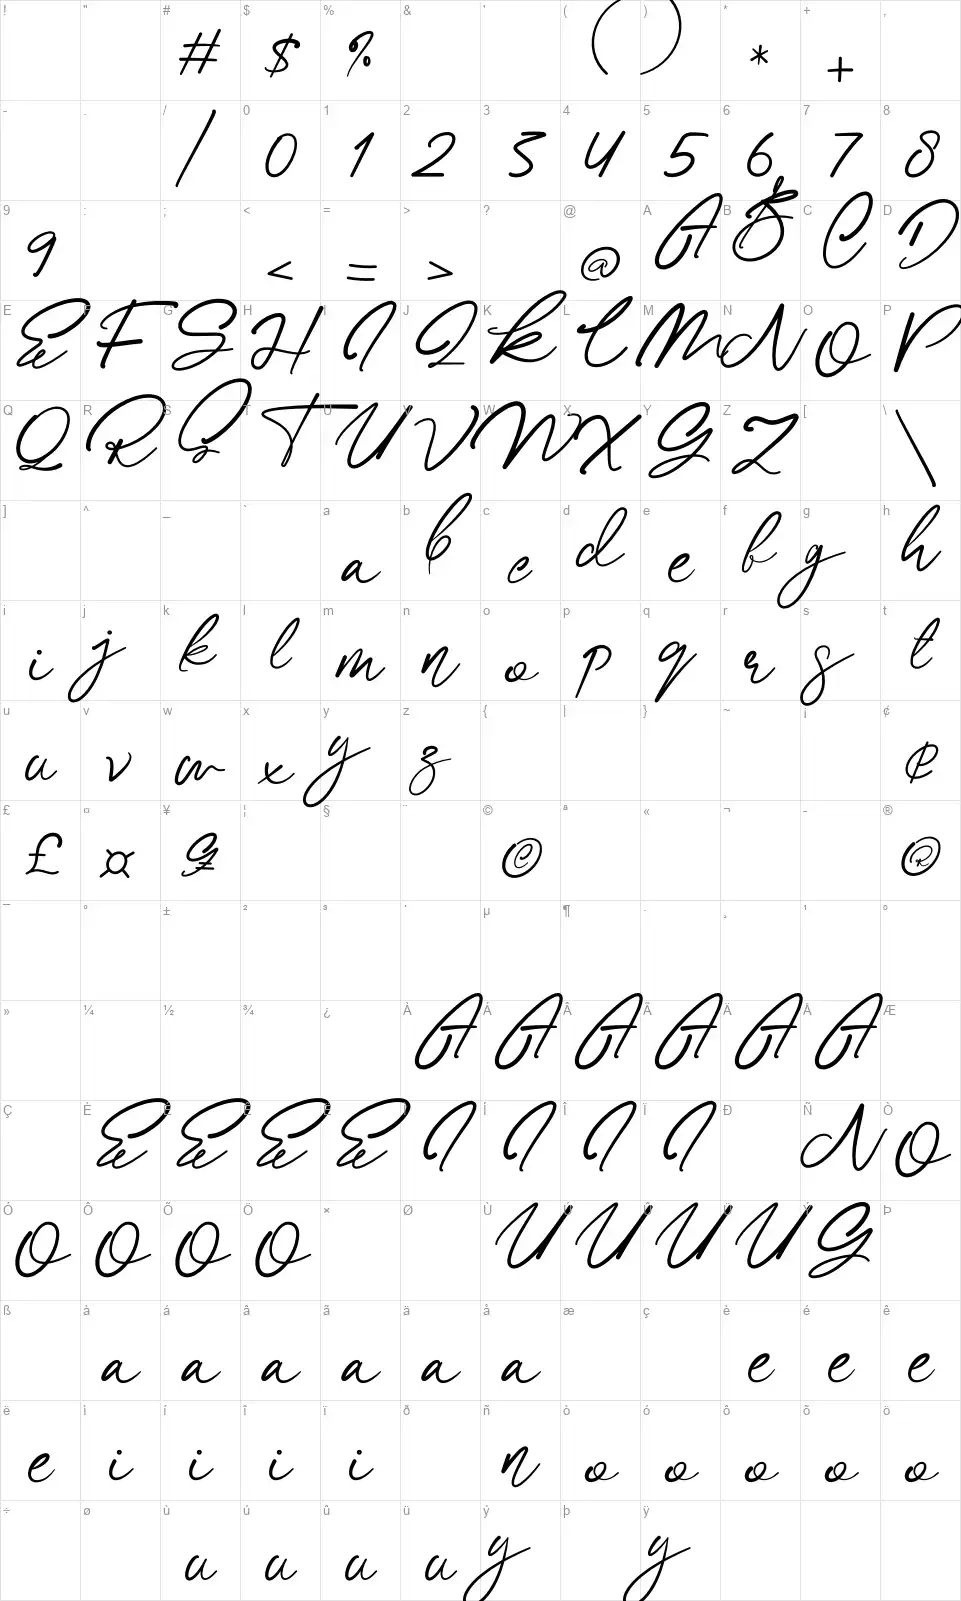 ! " # $ % & ' ( ) * + ,
# $ % ( ) * +
- . / 0 1 2 3 4 5 6 7 8
/ 0 1 2 3 4 5 6 7 8
9 : ; < = > ? @ A B C D
9 < = > @ A B C D
E F G H I J K L M N O P
E F G H I J K L M N O P
Q R S T U V W X Y Z [ \
Q R S T U V W X Y Z \
] ^ _ ` a b c d e f g h
a b c d e f g h
i j k l m n o p q r s t
i j k l m n o p q r s t
u v w x y z { | } ~ ¡ ¢
u v w x y z ¢
£ ¤ ¥ ¦ § ¨ © ª « ¬ - ®
£ ¤ ¥ © ®
¯ ° ± ² ³ ´ µ ¶ · ¸ ¹ º
» ¼ ½ ¾ ¿ À Á Â Ã Ä Å Æ
A A A A A A
Ç È É Ê Ë Ì Í Î Ï Ð Ñ Ò
E E E E I I I I N O
Ó Ô Õ Ö × Ø Ù Ú Û Ü Ý Þ
O O O O U U U U Y
ß à á â ã ä å æ ç è é ê
a a a a a a e e e
ë ì í î ï ð ñ ò ó ô õ ö
e i i i i n o o o o o
÷ ø ù ú û ü ý þ ÿ
u u u u y y